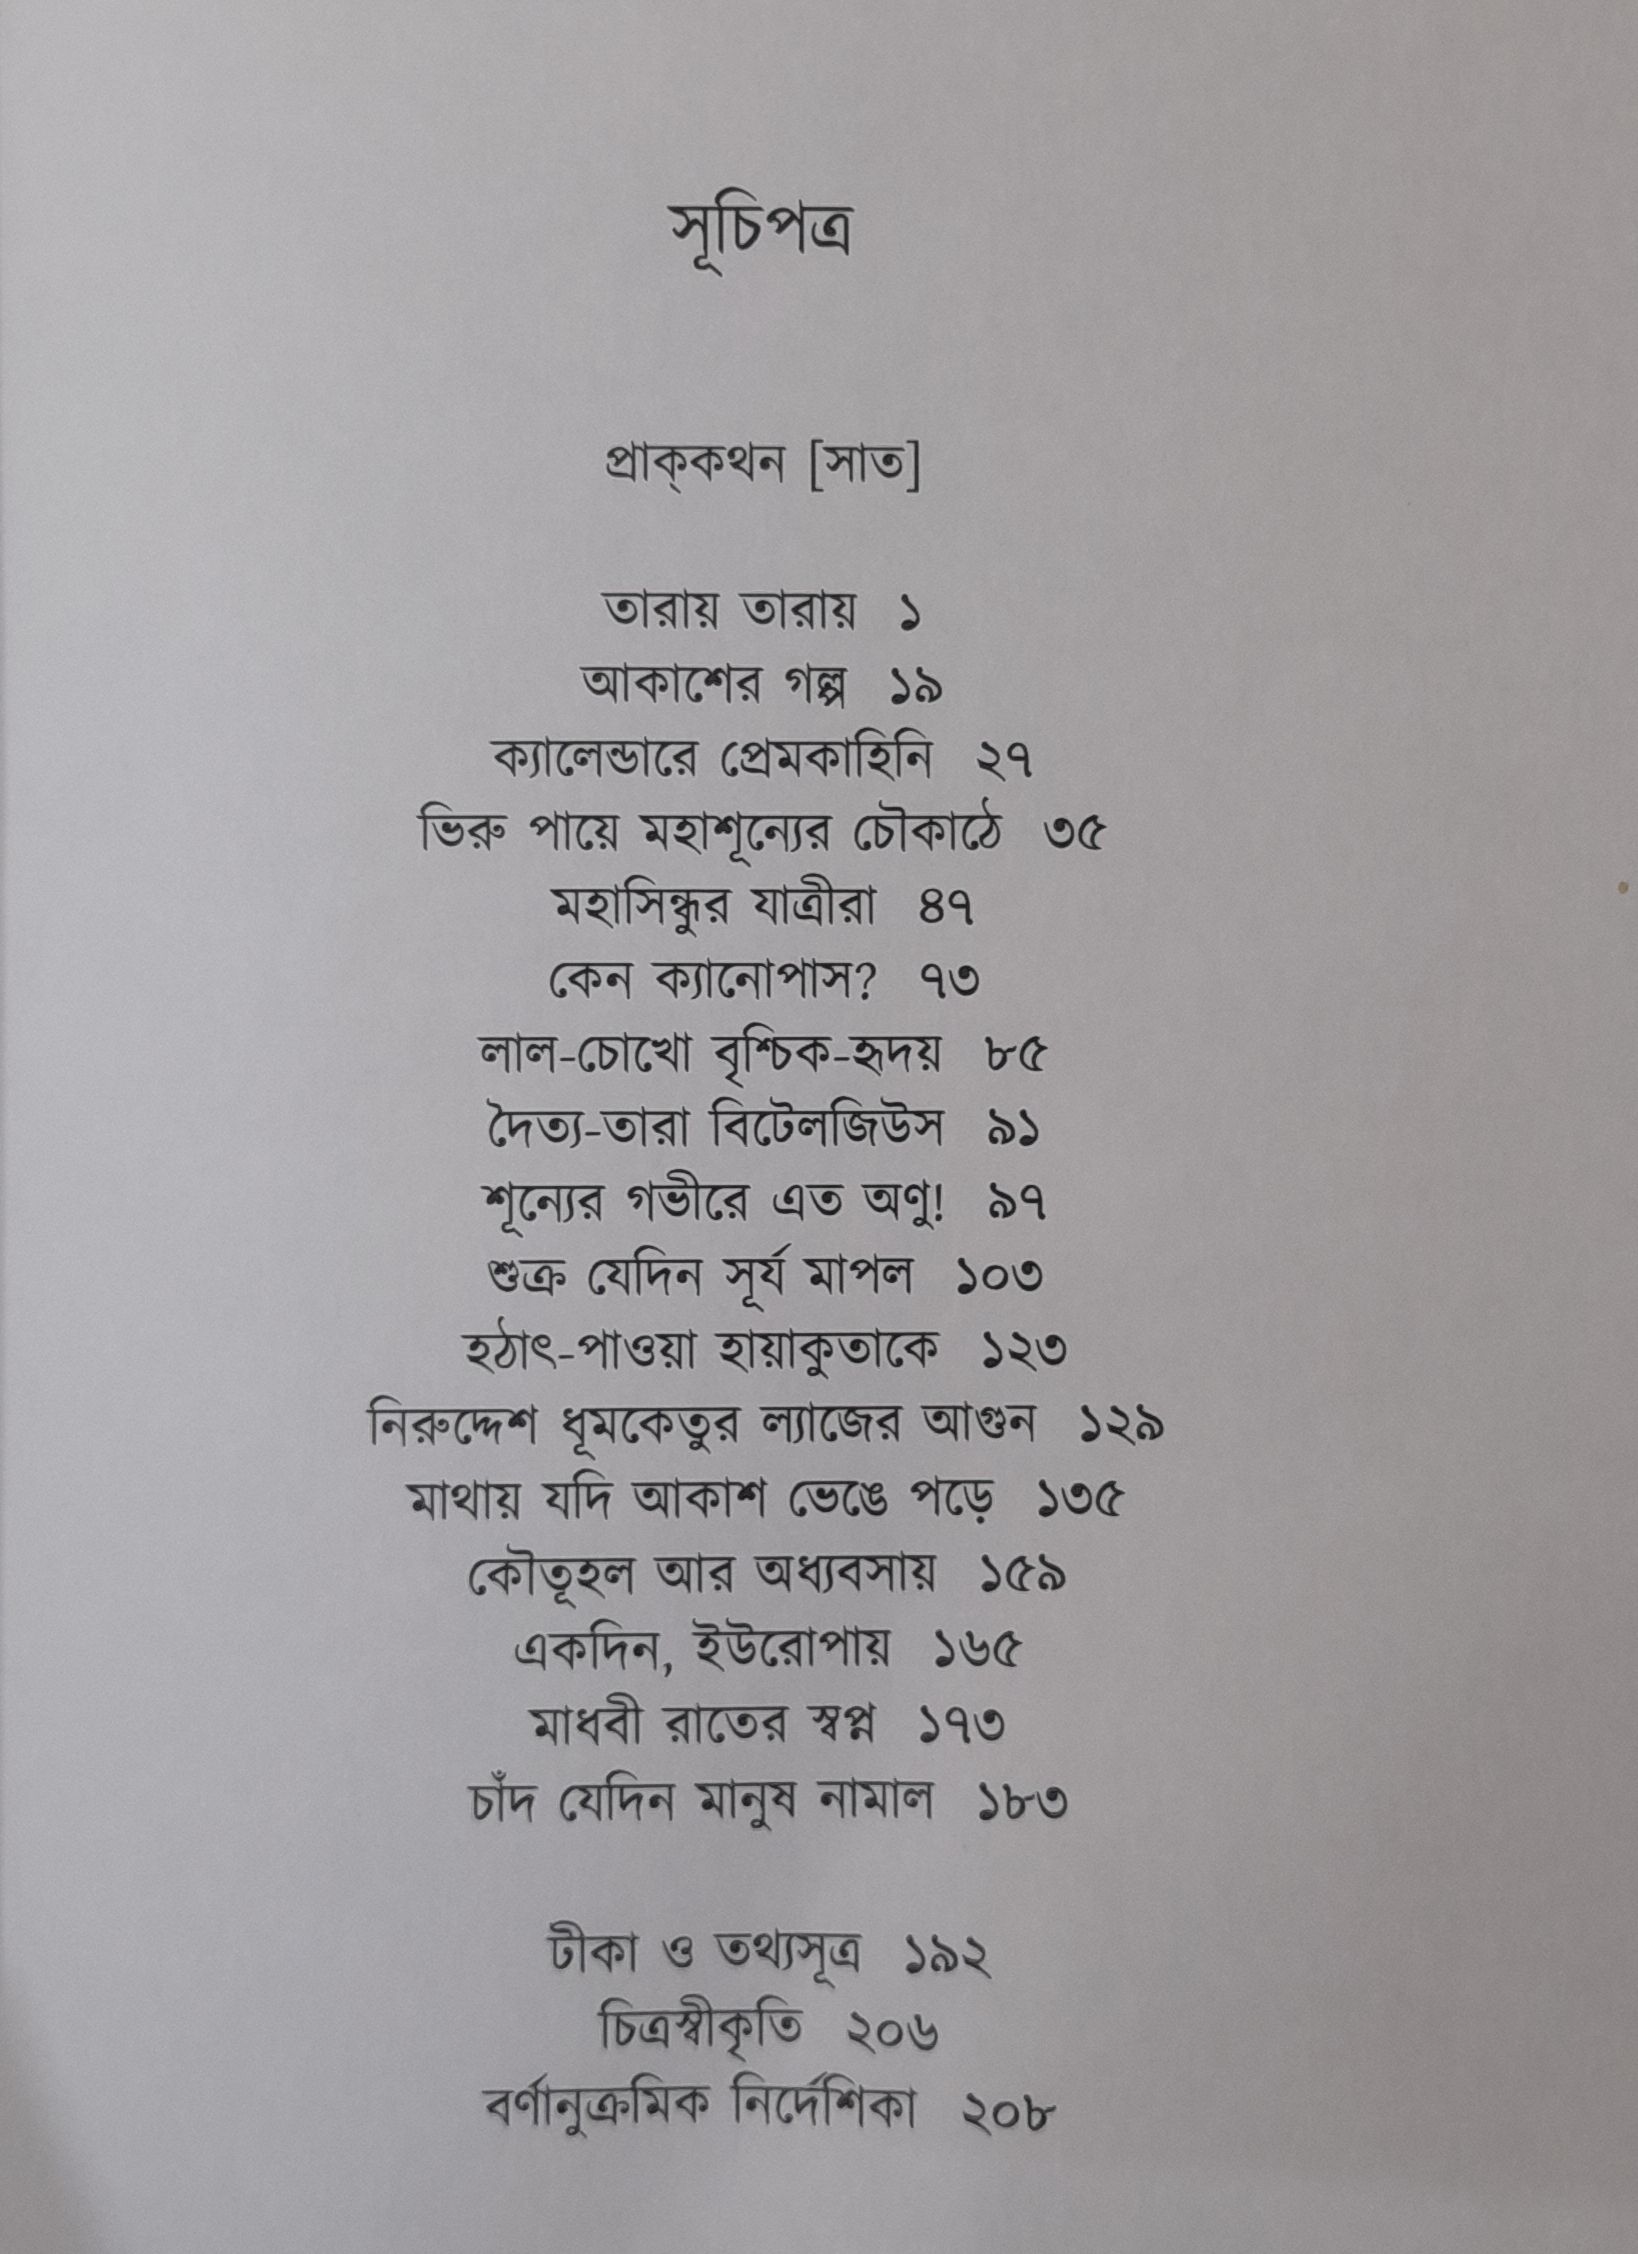 সূচিপত্র
প্রাক্‌কথন [সাত]
তারায় তারায় ১
আকাশের গল্প ১৯
ক্যালেন্ডারে প্রেমকাহিনি ২৭
ভিরু পায়ে মহাশূন্যের চৌকাঠে ৩৫
মহাসিন্ধুর যাত্রীরা ৪৭
কেন ক্যানোপাস? ৭৩
লাল-চোখো বৃশ্চিক-হৃদয় ৮৫
দৈত্য-তারা বিটেলজিউস ৯১
শূন্যের গভীরে এত অণু! ৯৭
শুক্র যেদিন সূর্য মাপল ১০৩
হঠাৎ-পাওয়া হায়াকুতাকে ১২৩
নিরুদ্দেশ ধূমকেতুর ল্যাজের আগুন ১২৯
মাথায় যদি আকাশ ভেঙে পড়ে ১৩৫
কৌতূহল আর অধ্যবসায় ১৫৯
একদিন, ইউরোপায় ১৬৫
মাধবী রাতের স্বপ্ন ১৭৩
চাঁদ যেদিন মানুষ নামাল ১৮৩
টীকা ও তথ্যসূত্র ১৯২
চিত্রস্বীকৃতি ২০৬
বর্ণানুক্রমিক নির্দেশিকা ২০৮